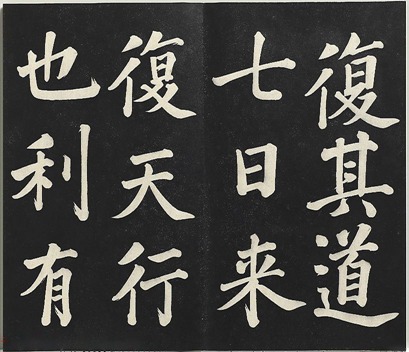 復其道
七日来
復天行
也利有